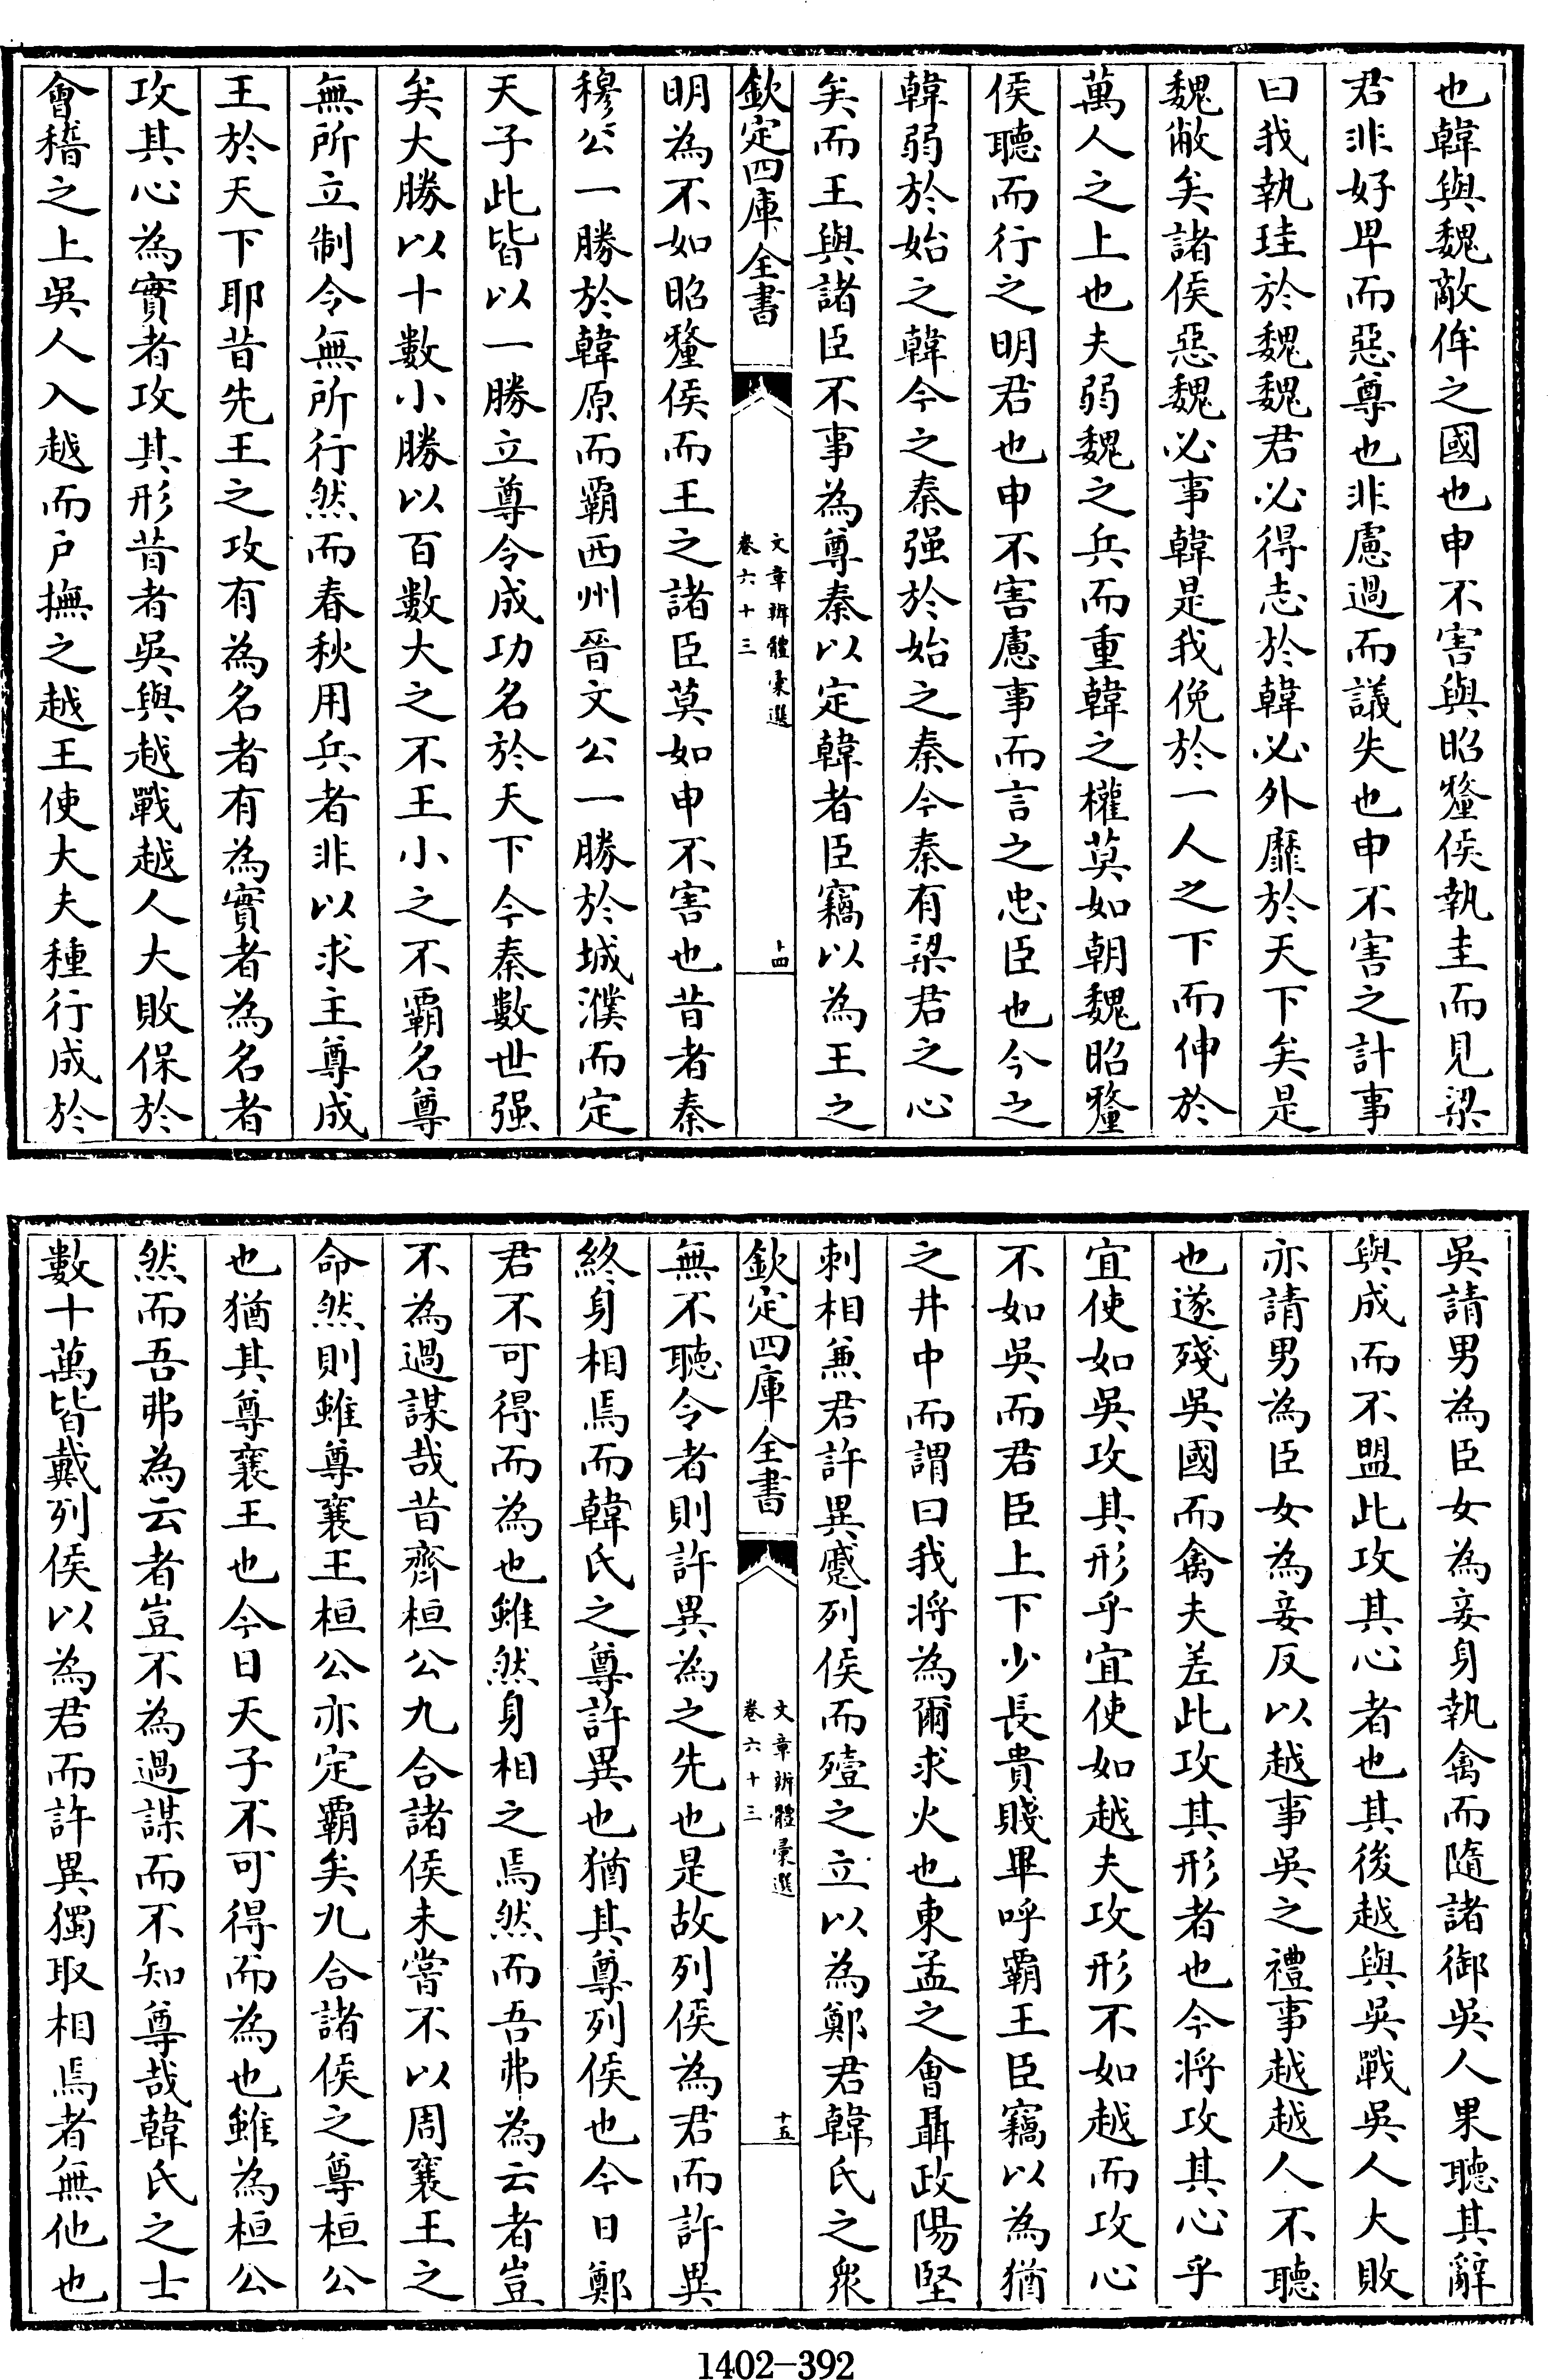 也韓與魏敵侔之國也申不害與昭釐侯執圭而見梁
君非好卑而惡尊也非慮過而議失也申不害之計事
曰我執珪於魏魏君必得志於韓必外靡於天下矣是
魏敝矣諸侯惡魏必事韓是我俛於一人之下而伸於
萬人之上也夫弱魏之兵而重韓之權莫如朝魏昭釐
侯聽而行之明君也申不害慮事而言之忠臣也今之
韓弱於始之韓今之秦强於始之秦今秦有梁君之心
矣而王與諸臣不事為尊秦以定韓者臣竊以為王之
欽定四庫全書
文章辨體彙選
卷六十三
十四
明為不如昭釐侯而王之諸臣莫如申不害也昔者秦
穆公一勝於韓原而霸西州晉文公一勝於城濮而定
天子此皆以一勝立尊令成功名於天下今秦數世强
矣大勝以十數小勝以百數大之不王小之不霸名尊
無所立制令無所行然而春秋用兵者非以求主尊成
王於天下耶昔先王之攻有為名者有為實者為名者
攻其心為實者攻其形昔者吳與越戰越人大敗保於
會稽之上吳人入越而戶撫之越王使大夫種行成於
吳請男為臣女為妾身執禽而隨諸御吳人果聽其辭
與成而不盟此攻其心者也其後越與吳戰吳人大敗
亦請男為臣女為妾反以越事吳之禮事越越人不聽
也遂殘吳國而禽夫差此攻其形者也今將攻其心乎
宜使如吳攻其形乎宜使如越夫攻形不如越而攻心
不如吳而君臣上下少長貴賤畢呼霸王臣竊以為猶
之井中而謂曰我將為爾求火也東孟之會聶政陽堅
刺相兼君許異蹙列侯而殪之立以為鄭君韓氏之衆
欽定四庫全書
文章辨體彙選
卷六十三
十五
無不聽令者則許異為之先也是故列侯為君而許異
終身相焉而韓氏之尊許異也猶其尊列侯也今日鄭
君不可得而為也雖然身相之焉然而吾弗為云者豈
不為過謀哉昔齊桓公九合諸侯未嘗不以周襄王之
命然則雖尊襄王桓公亦定霸矣九合諸侯之尊桓公
也猶其尊襄王也今日天子不可得而為也雖為桓公
然而吾弗為云者豈不為過謀而不知尊哉韓氏之士
數十萬皆戴列侯以為君而許異獨取相焉者無他也
1402-392